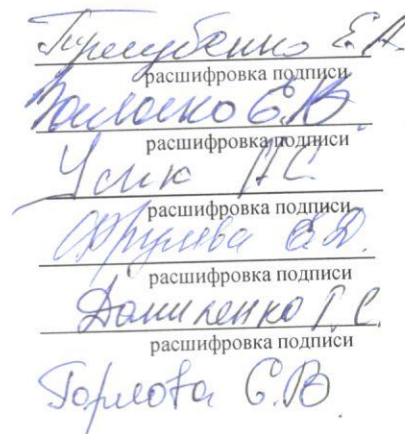 Е.А.
расшифровка подписи
С.В.
расшифровка подписи
Усик А.С.
расшифровка подписи
расшифровка подписи
Даниленко Г.С.
расшифровка подписи
Горлова С.В.